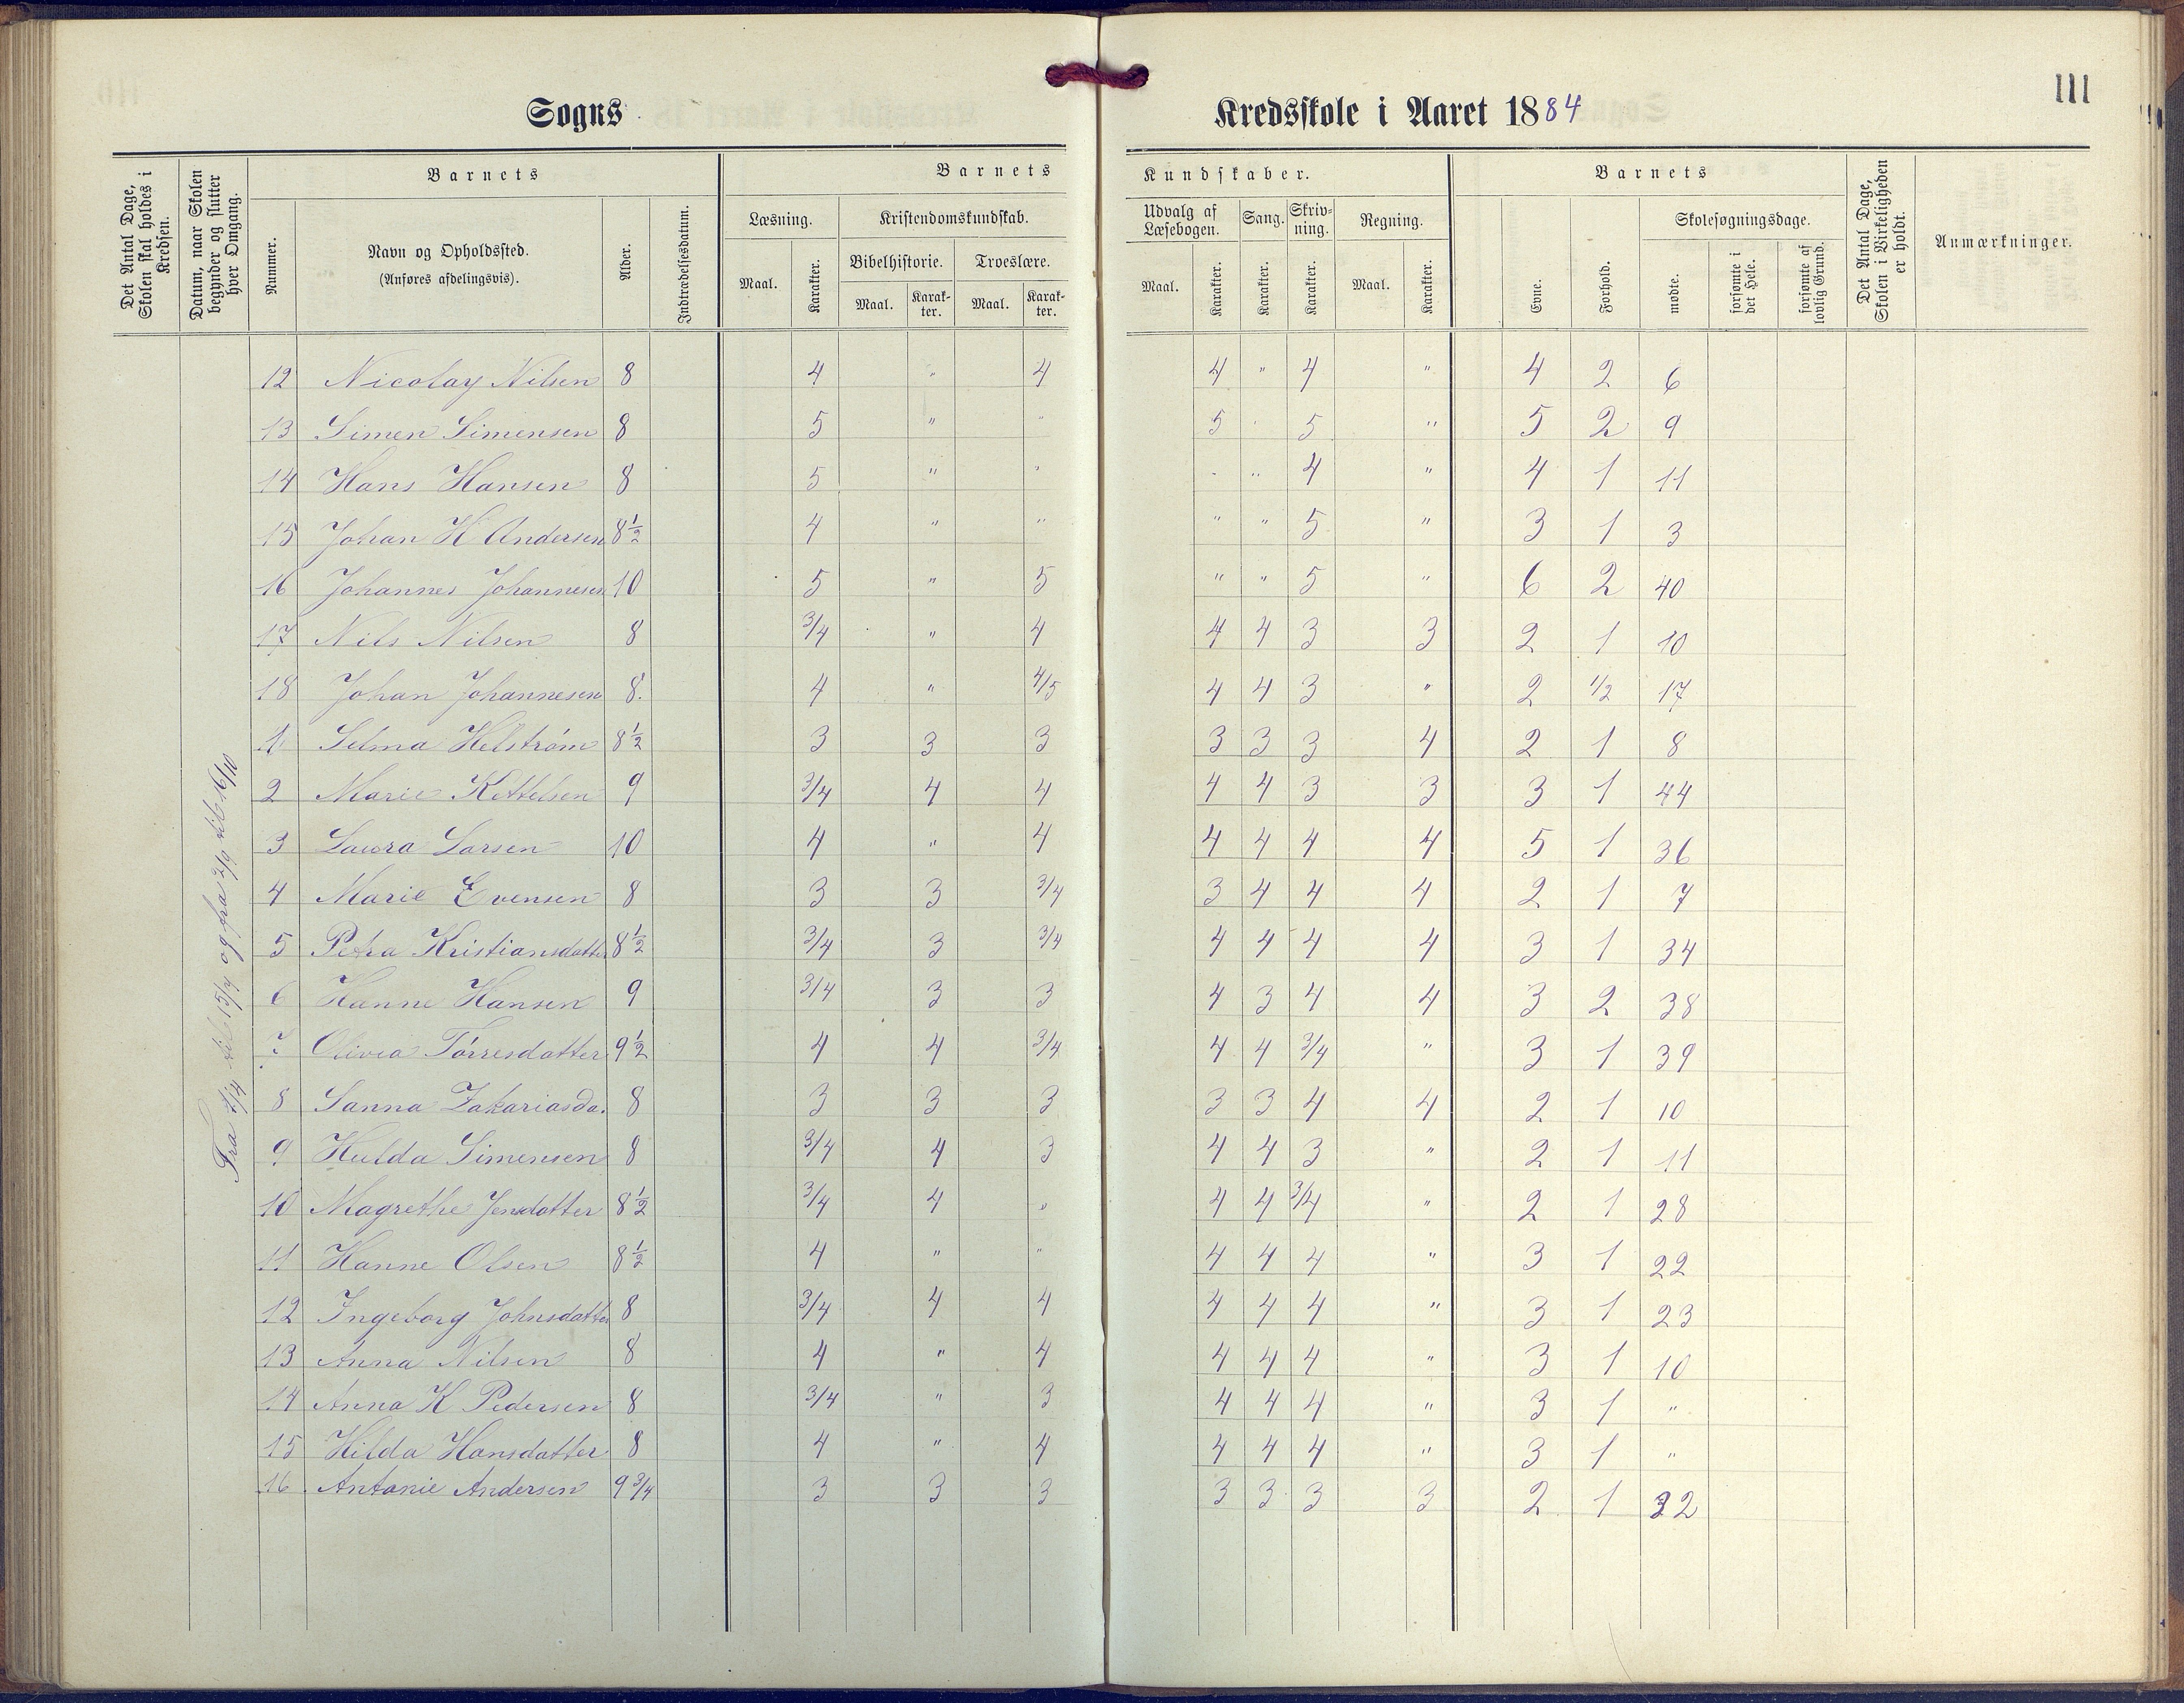 111
Sogns Kredsskole i Aaret 1884
Det Antal Dage, Skolen skal holdes i Kredsen.
Datum, naar Skolen begynder og slutter hver Omgang.
Barnets
Nummer.
Navn og Opholdssted.
(Anføres afdelingsvis).
Alder.
Indtrædelsesdatum.
Barnets Kundskaber.
Læsning.
Maal.
Karakter.
Kristendomskundskab.
Bibelhistorie.
Maal.
Karakter.
Troeslære.
Maal.
Karakter.
Udvalg af Læsebogen.
Maal.
Karakter.
Sang.
Karakter.
Skrivning.
Karakter.
Regning.
Maal.
Karakter.
Barnets
Evne.
Forhold.
Skolesøgningsdage.
mødte.
forsømte i det Hele.
forsømte af lovlig Grund.
Det Antal Dage, Skolen i Virkeligheden er holdt.
Anmærkninger.
12 Nicolay Nilsen 8 4 " 4 4 " 4 " 4 2 6
13 Simen Simensen 8 5 " " 5 " 5 " 5 2 9
14 Hans Hansen 8 5 " " " " 4 " 4 1 11
15 Johan H Andersen 8½ 4 " " " " 5 " 3 1 3
16 Johannes Johannesen 10 5 " 5 " " 5 " 6 2 40
17 Nils Nilsen 8 3/4 " 4 4 4 3 3 2 1 10
18 Johan Johannesen 8. 4 " 4/5 4 4 3 " 2 1/2 17
1 Selma Helström 8½ 3 3 3 3 3 3 4 2 1 8
2 Marie Kettelsen 9 3/4 4 4 4 4 3 3 3 1 44
3 Laura Larsen 10 4 " 4 4 4 4 4 5 1 36
4 Marie Evensen 8 3 3 3/4 3 4 4 4 2 1 7
5 Petra Kristiansdatter 8½ 3/4 3 3/4 4 4 4 4 3 1 34
6 Hanne Hansen 9 3/4 3 3 4 3 4 4 3 2 38
7 Olivia Törresdatter 9½ 4 4 3/4 4 4 3/4 " 3 1 39
8 Sanna Zakariasda. 8 3 3 3 3 3 4 4 2 1 10
9 Hulda Simensen 8 3/4 4 3 4 4 3 " 2 1 11
10 Magrethe Jensdatter 8½ 3/4 4 " 4 4 3/4 " 2 1 28
11 Hanne Olsen 8½ 4 " " 4 4 4 " 3 1 22
12 Ingeborg Johnsdatter 8 3/4 4 4 4 4 4 " 3 1 23
13 Anna Nilsen 8 4 " 4 4 4 4 " 3 1 10
14 Anna K Pedersen 8 3/4 " 3 4 4 4 " 3 1 "
15 Hilda Hansdatter 8 4 " 4 4 4 4 " 3 1 "
16 Antonie Andersen 9 3/4 3 3 3 3 3 3 3 2 1 32